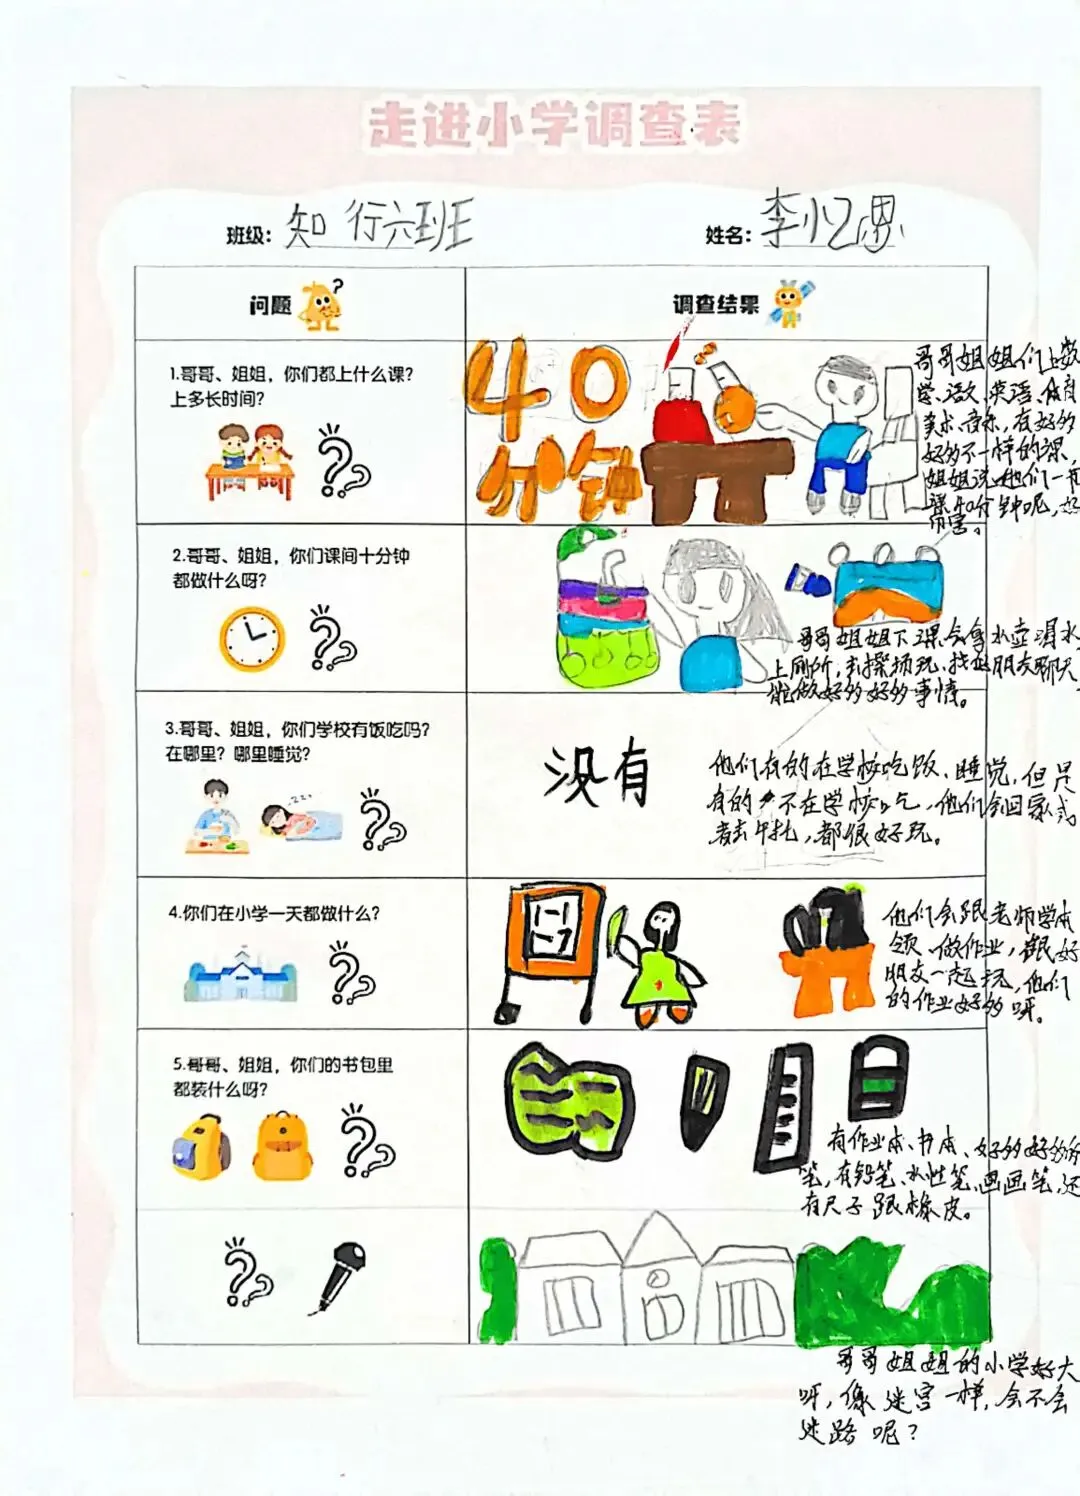 走进小学调查表
班级: 知行六班 姓名: 李小忆恩
问题 调查结果
1.哥哥、姐姐,你们都上什么课?
上多长时间?
40
分钟
哥哥姐姐们上数
学、语文、英语、体育
美术、音乐,有好多
好多不一样的课,
姐姐说她们一节
课40分钟呢,好
厉害。
2.哥哥、姐姐,你们课间十分钟
都做什么呀?
哥哥姐姐下课会拿水壶喝水
上厕所,去操场玩、找好朋友聊天
能做好多好多事情。
3.哥哥、姐姐,你们学校有饭吃吗?
在哪里?哪里睡觉?
没有
他们有的在学校吃饭、睡觉,但是
有的不在学校吃,他们会回家或
者去午托,都很好玩。
4.你们在小学一天都做什么?
他们会跟老师学本
领、做作业,跟好
朋友一起玩,他们
的作业好多呀。
5.哥哥、姐姐,你们的书包里
都装什么呀?
有作业本、书本、好多好多
笔,有铅笔、水性笔、画画笔,还
有尺子跟橡皮。
哥哥姐姐的小学好大
呀,像迷宫一样,会不会
迷路呢?